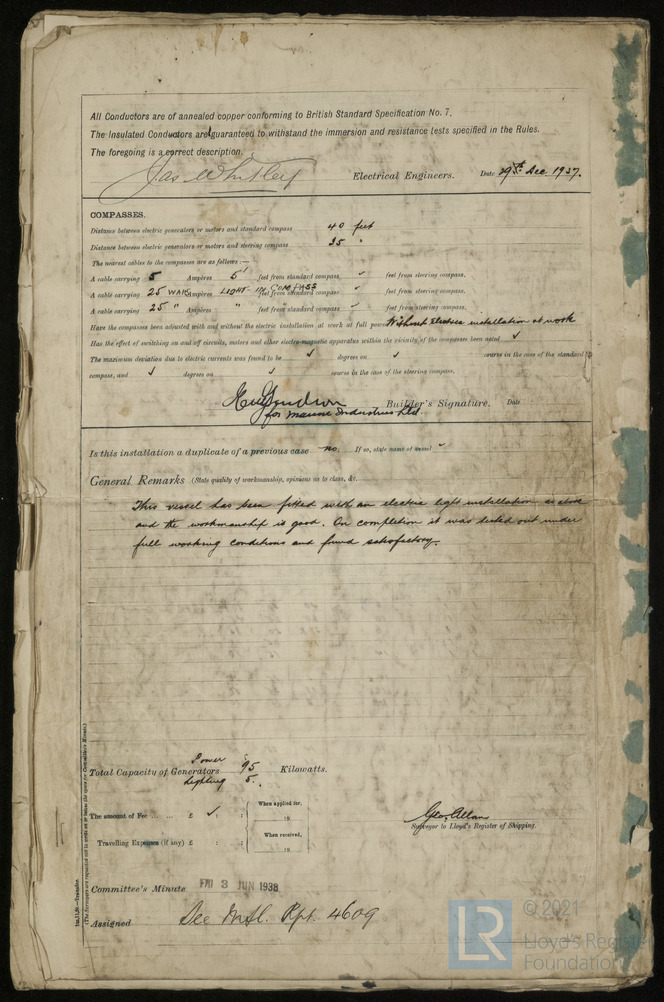 All Conductors are of annealed copper conforming to British Standard Specification No. 7.
The Insulated Conductors are guaranteed to withstand the immersion and resistance tests specified in the Rules.
The foregoing is a correct description.
Jas Whitley Electrical Engineers. Date 29th Dec 1937.
COMPASSES.
Distance between electric generators or motors and standard compass 40 feet
Distance between electric generators or motors and steering compass 35 "
The nearest cables to the compasses are as follows:—
A cable carrying 5 Ampères 5' feet from standard compass ✓ feet from steering compass.
A cable carrying 25 WATT Ampères LIGHT IN COMPASS feet from standard compass ✓ feet from steering compass.
A cable carrying 25 " Ampères " " feet from standard compass ✓ feet from steering compass.
Have the compasses been adjusted with and without the electric installation at work at full power Without Electric installation at work
Has the effect of switching on and off circuits, motors and other electro-magnetic apparatus within the vicinity of the compasses been noted ✓
The maximum deviation due to electric currents was found to be ✓ degrees on ✓ course in the case of the standard
compass, and ✓ degrees on ✓ course in the case of the steering compass.
Builder's Signature. Date
for Marine Industries Ltd.
Is this installation a duplicate of a previous case no. If so, state name of vessel ✓
General Remarks (State quality of workmanship, opinions as to class, &c.
This vessel has been fitted with an electric light installation as
and the workmanship is good. On completion it was tested out under
full working conditions and found satisfactory.
Power 95
Total Capacity of Generators Kilowatts.
Lighting 5.
The amount of Fee ... ... £ ✓ : : When applied for, 19
Travelling Expenses (if any) £ : : When received, 19
Geo. Allan
Surveyor to Lloyd's Register of Shipping.
Committee's Minute FRI 3 JUN 1938
Assigned See Mtl. Rpt. 4609
1m,11,36.—Transfer.
(The Surveyors are requested not to write on or below the space for Committee's Minute.)
LR © 2021
Lloyd's Register
Foundation